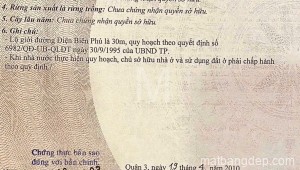 4. Rừng sản xuất là rừng trồng: Chưa chứng nhận quyền sở hữu.
5. Cây lâu năm: Chưa chứng nhận quyền sở hữu.
6. Ghi chú:
- Lộ giới đường Điện Biên Phủ là 30m, quy hoạch theo quyết định số
6982/QĐ-UB-QLĐT ngày 30/9/1995 của UBND TP.
- Khi nhà nước thực hiện quy hoạch, chủ sở hữu nhà ở và sử dụng đất ở phải chấp hành
theo quy định./
Chứng thực bản sao
đúng với bản chính
Quận 3, ngày 13 tháng 4 năm 2010
matbangdep.com